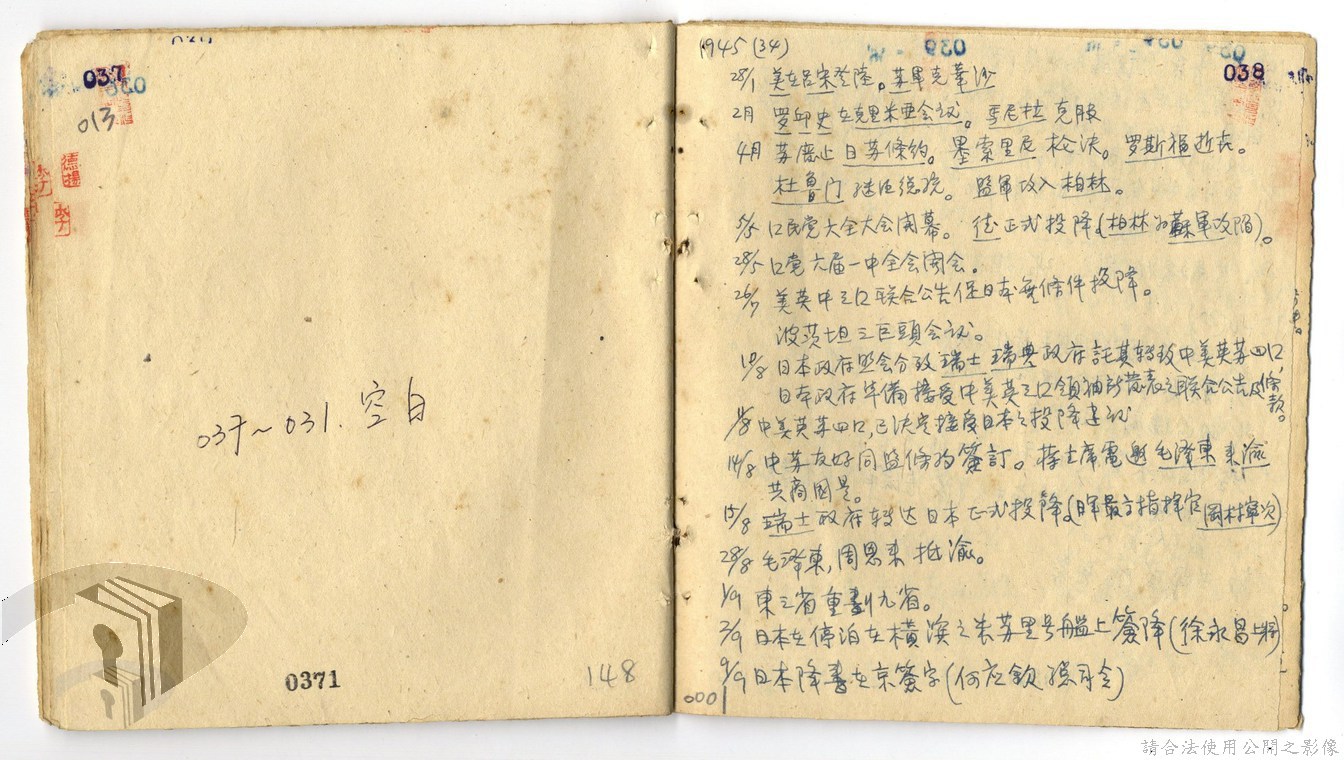 037
013
德揚
037~031.空白
0371
148
1945(34)
038
28/1 美在吕宋登陸。苏軍克華沙
2月 罗邱史在克里米亚会议。馬尼拉克服
4月 苏廢止日苏條約。墨索里尼枪决。罗斯福逝去。
杜鲁门继任總统。盟軍攻入柏林。
5/5 口民党六全大会開幕。德正式投降(柏林为蘇軍攻陷)。
28/5 口党六届一中全会開会。
26/7 美英中三口联合公告促日本無條件投降。
波茨坦三巨頭会议。
10/8 日本政府照会分致瑞士瑞典政府託其转致中美英苏四口,
日本政府準備接受中美英三口領袖所發表之联合公告及條款。
11/8 中美英苏四口,已决定接受日本之投降建议
14/8 中苏友好同盟條約簽訂。蒋主席電邀毛泽東来渝
共商國是。
15/8 瑞士政府转达日本正式投降(日軍最高指揮官岡村寧次)
28/8 毛泽東,周恩来抵渝。
1/9 東三省重劃九省。
2/9 日本在停泊在横滨之米苏里号艦上簽降(徐永昌上將)
9/9 日本降書在京簽字(何应欽總司令)
0001
請合法使用公開之影像